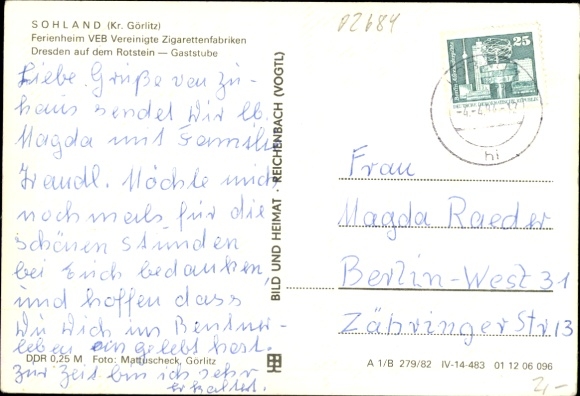 SOHLAND (Kr. Görlitz)
Ferienheim VEB Vereinigte Zigarettenfabriken
Dresden auf dem Rotstein — Gaststube
Liebe Grüße von Zu-
haus sendet Dir lb.
Magda mit Familie
Traudl. Möchte mich
nochmals für die
schönen Stunden
bei Euch bedanken,
und hoffen dass
Du Dich im Rentner-
leben eingelebt hast.
Zur Zeit bin ich sehr
erkältet.
DDR 0,25 M Foto: Mattuscheck, Görlitz
BILD UND HEIMAT · REICHENBACH (VOGTL)
02684
25
hi
Frau
Magda Raeder
Berlin-West 31
Zähringer Str. 13
A 1/B 279/82 IV-14-483 01 12 06 096
2,-